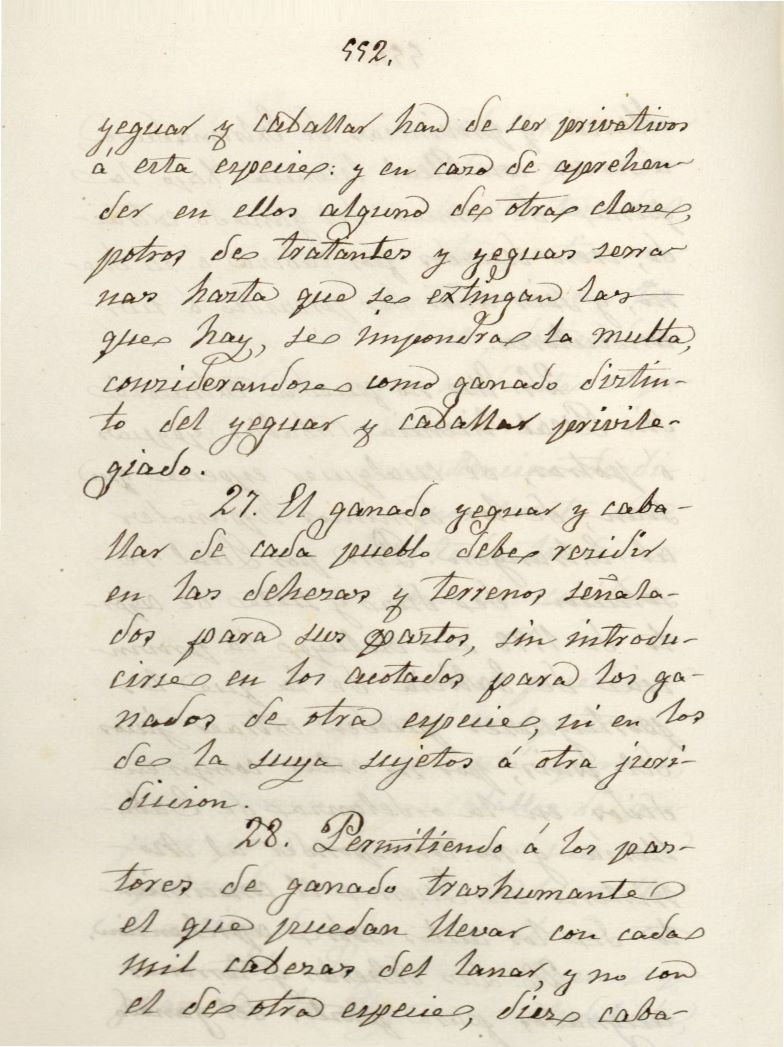 552.
yeguar y caballar han de ser privativos
á esta especie: y en caso de aprehen-
der en ellos alguno de otra clase,
potros de tratantes y yeguas serra-
nas hasta que se extingan las
que hay, se impondra la multa,
considerandose como ganado distin-
to del yeguar y caballar privile-
giado.
27. El ganado yeguar y caba-
llar de cada pueblo debe residir
en las dehesas y terrenos señala-
dos para sus pastos, sin introdu-
cirse en los acotados para los ga-
nados de otra especie, ni en los
de la suya sujetos á otra juri-
diccion.
28. Permitiendo á los pas-
tores de ganado trashumante
el que puedan llevar con cada
mil cabezas del lanar, y no con
el de otra especie, diez caba-